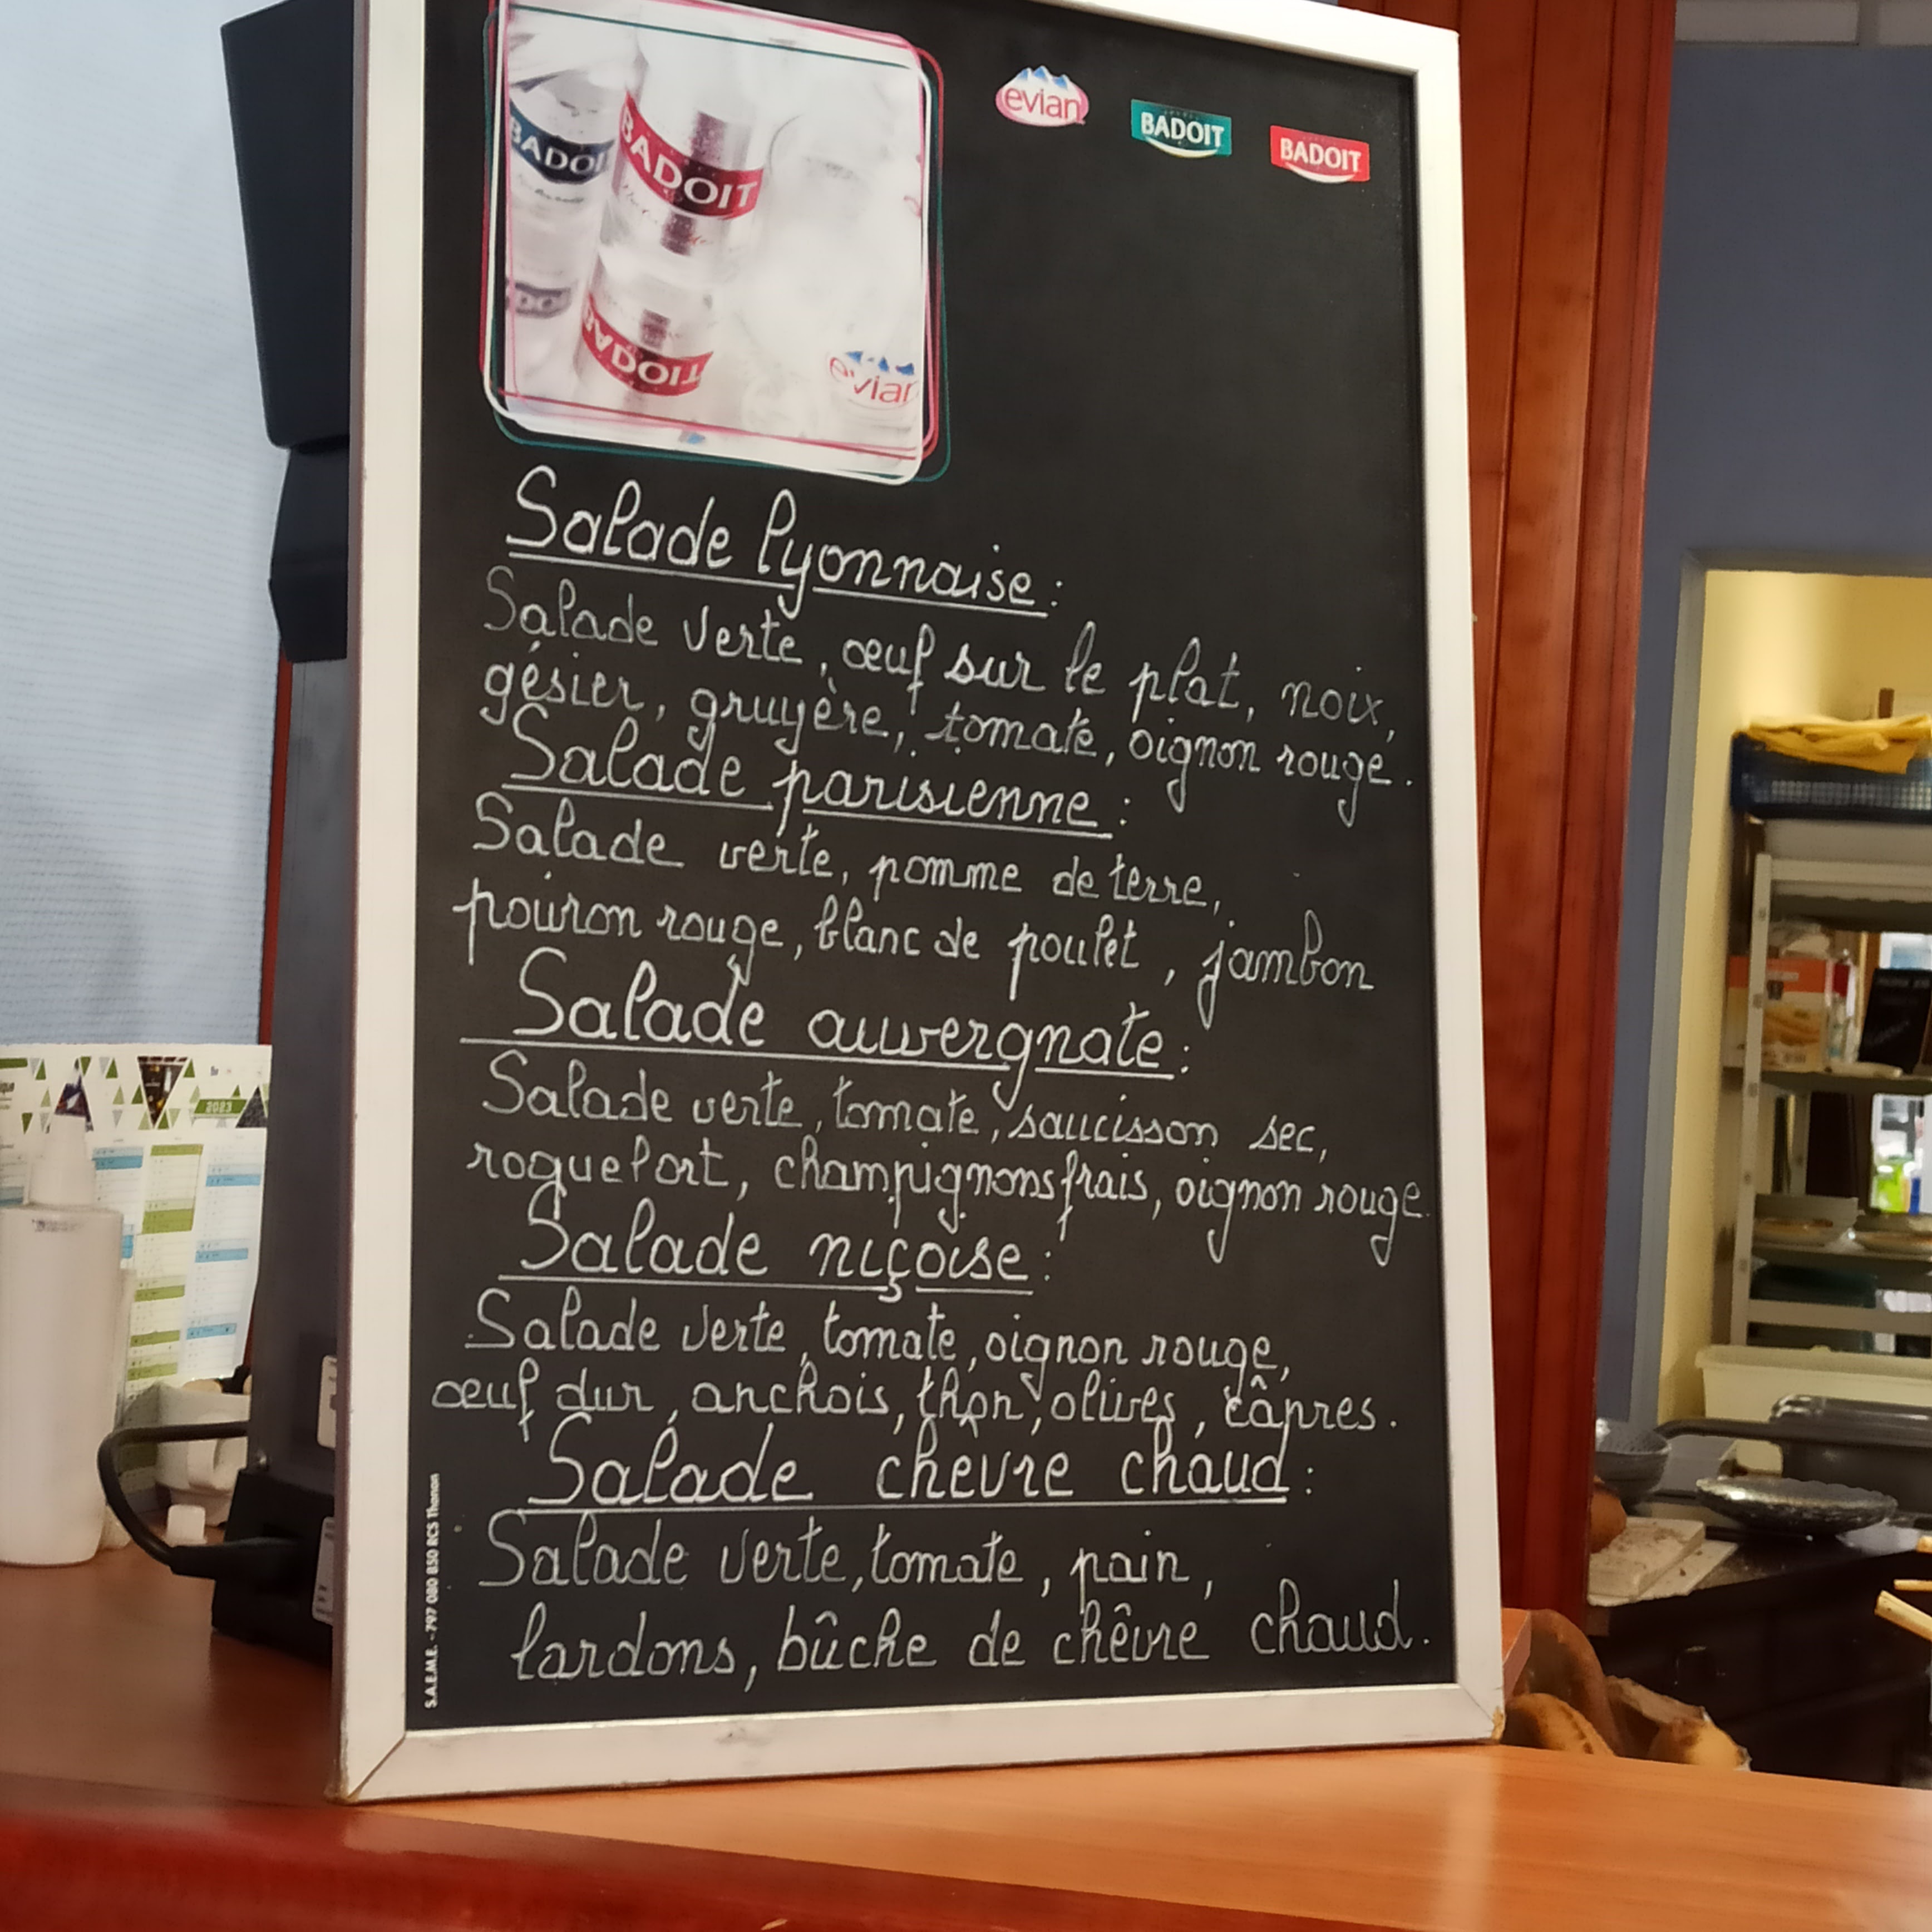 BADOIT
BADOIT
evian
evian
BADOIT
BADOIT
Salade lyonnaise :
Salade verte, œuf sur le plat, noix,
gésier, gruyère, tomate, oignon rouge.
Salade parisienne :
Salade verte, pomme de terre,
poivron rouge, blanc de poulet, jambon
Salade auvergnate :
Salade verte, tomate, saucisson sec,
roquefort, champignons frais, oignon rouge.
Salade niçoise :
Salade verte, tomate, oignon rouge,
œuf dur, anchois, thon, olives, câpres.
Salade chevre chaud :
Salade verte, tomate, pain,
lardons, bûche de chêvre chaud.
S.A.E.M.E. - 797 080 850 RCS Thonon
2023